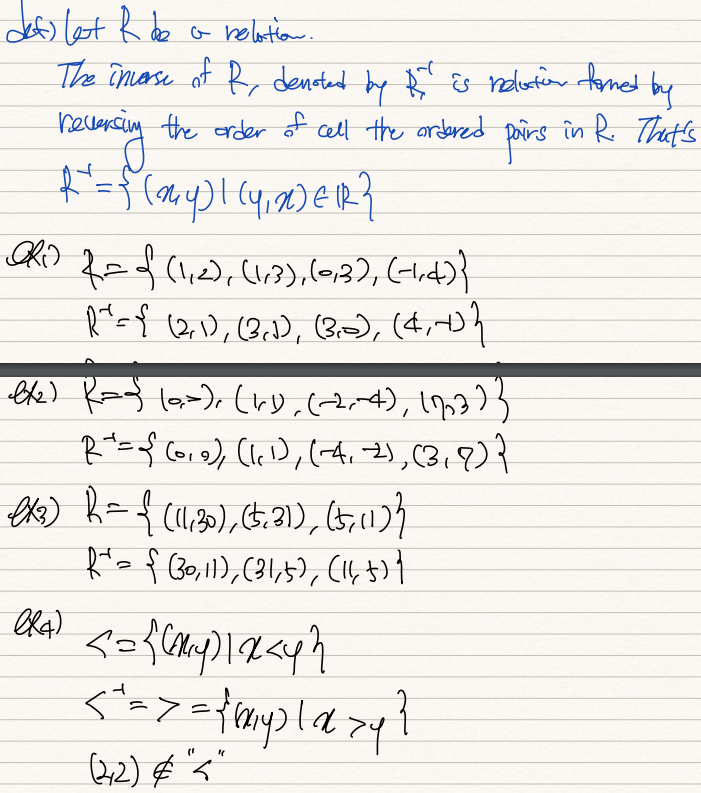 def) let R be a relation.
The inverse of R, denoted by R⁻¹ is relation formed by
reversing the order of all the ordered pairs in R. That's
R⁻¹={(x,y)|(y,x)∈R}
ex1) R={(1,2),(1,3),(0,3),(-1,4)}
R⁻¹={(2,1),(3,1),(3,0),(4,-1)}
ex2) R={(0,0),(1,1),(-2,-4),(7,3)}
R⁻¹={(0,0),(1,1),(-4,-2),(3,7)}
ex3) R={(11,30),(5,31),(5,11)}
R⁻¹={(30,11),(31,5),(11,5)}
ex4) <={(x,y)|x<y}
<⁻¹=>={(x,y)|x>y}
(2,2)∉"<"